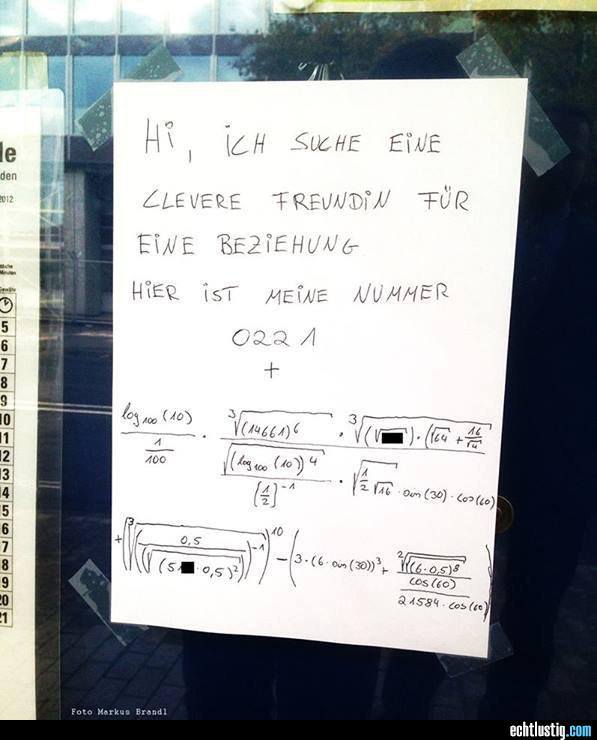 Hi, ICH SUCHE EINE
CLEVERE FREUNDIN FÜR
EINE BEZIEHUNG
HIER IST MEINE NUMMER
0221
+
log₁₀₀(10) / (1/100) · ∛(14661)⁶ / (√(log₁₀₀(10))⁴ / [1/2]⁻¹) · ∛(√██)·(√64 + 16/√4) / (√(1/2 √16) · sin(30) · cos(60))
+ (∛((0,5 / (√(51█·0,5)²))⁻¹))¹⁰ − (3·(6·sin(30))³ + ²√((6·0,5)⁸ / cos(60)) / 21584·cos(60))
le
den
2012
5
6
7
8
9
10
11
12
13
14
15
16
7
8
19
20
21
Foto Markus Brandl
echtlustig.com